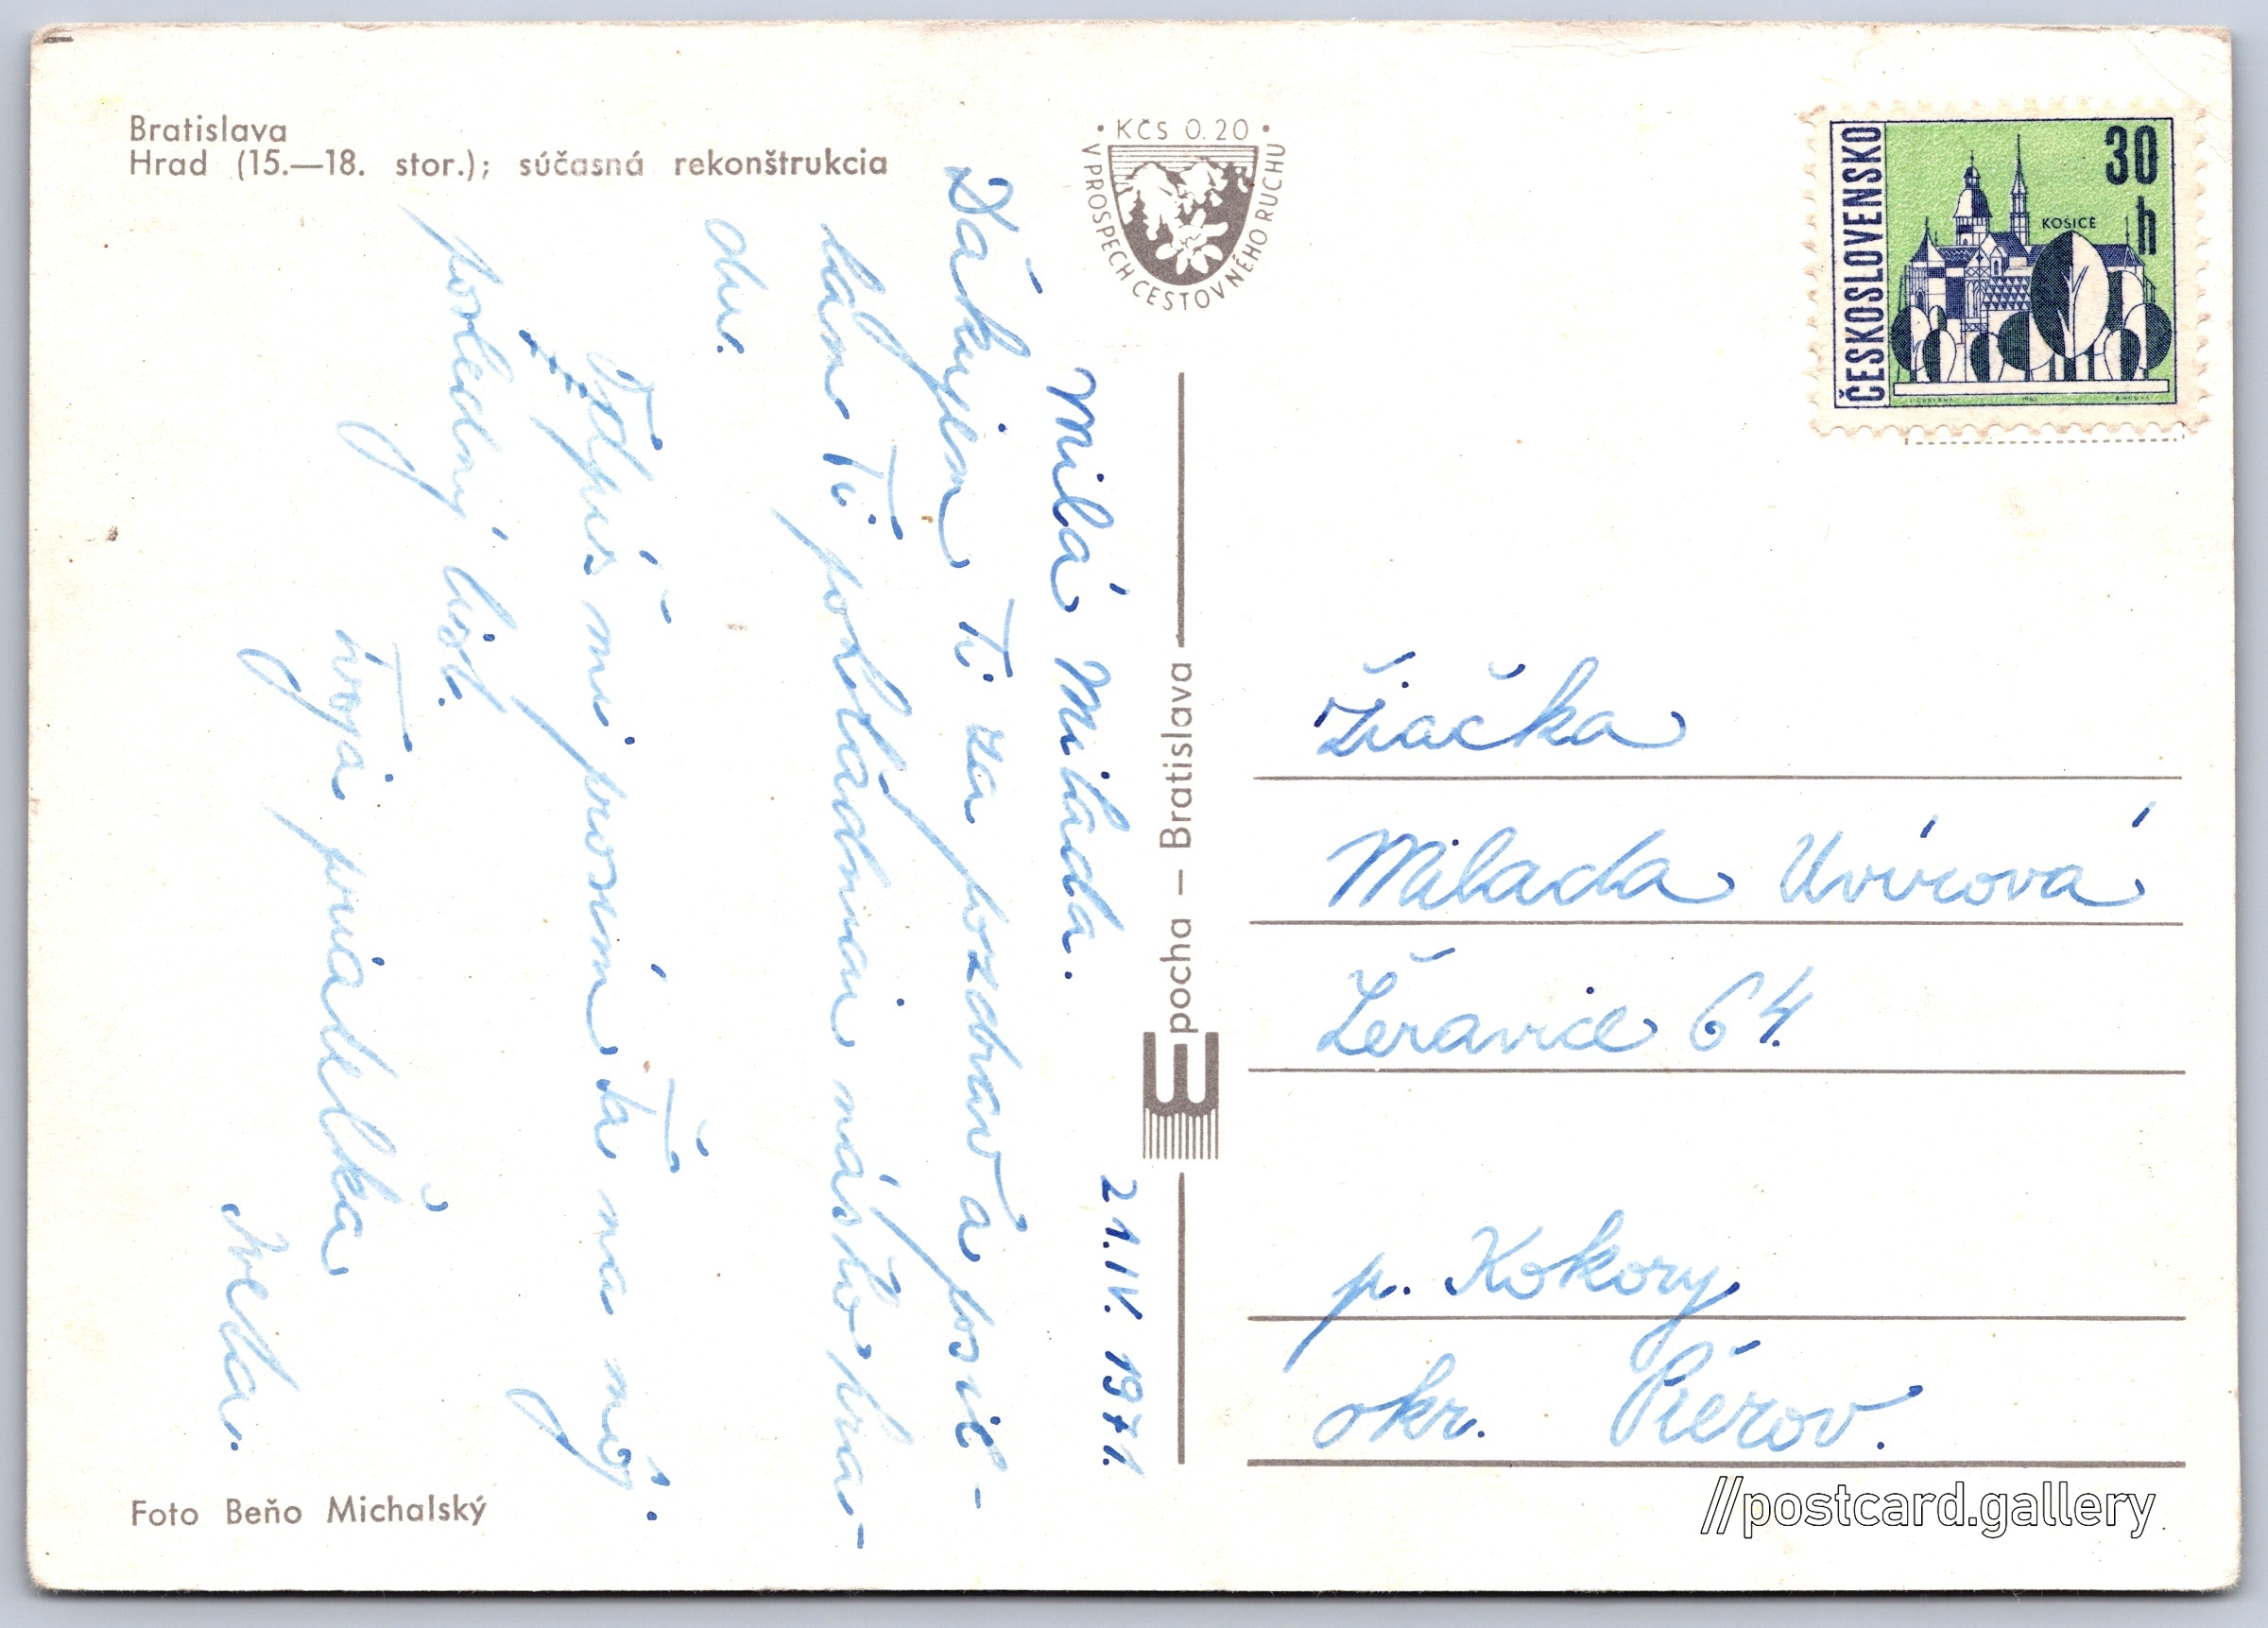 Bratislava
Hrad (15.—18. stor.); súčasná rekonštrukcia
• KČS 0.20 •
V PROSPECH CESTOVNÉHO RUCHU
ČESKOSLOVENSKO
30
h
KOŠICE
21.IV. 1971.
Milá Milada.
Ďakujem Ti za pozdrav a posie-
lam Ti pohladnicu nášho hra-
du.
Odpíš mi prosím Ťa na môj
posledný list.
Tvoja priateľka
Iveta.
Epocha – Bratislava
Žiačka
Milada Uvírová
Žeravice 64.
p. Kokory
okr. Přerov.
Foto Beňo Michalský
//postcard.gallery